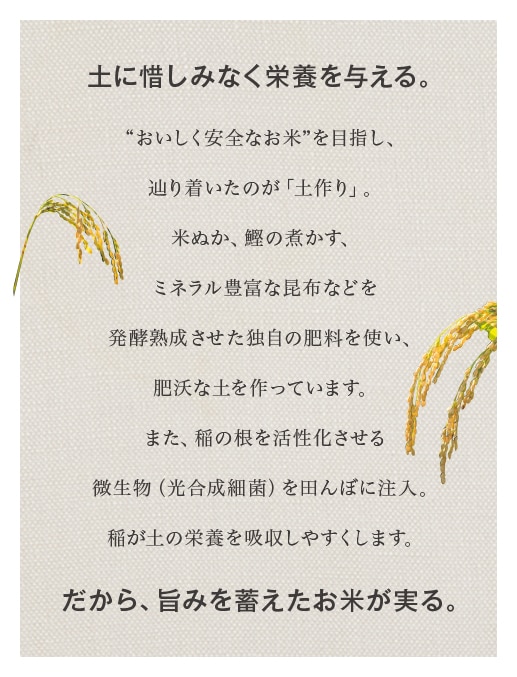 土に惜しみなく栄養を与える。
“おいしく安全なお米”を目指し、
辿り着いたのが「土作り」。
米ぬか、鰹の煮かす、
ミネラル豊富な昆布などを
発酵熟成させた独自の肥料を使い、
肥沃な土を作っています。
また、稲の根を活性化させる
微生物（光合成細菌）を田んぼに注入。
稲が土の栄養を吸収しやすくします。
だから、旨みを蓄えたお米が実る。